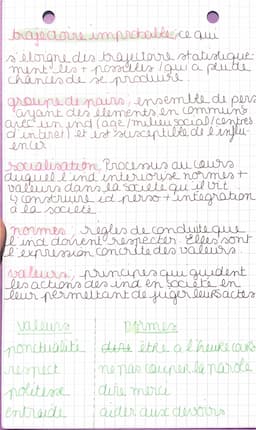 trajectoire improbable, ce qui
s'éloigne des trajectoire statistique-
ment les + possibles / qui a peu de
chances de se produire.
groupe de pairs, ensemble de pers
ayant des éléments en communs
avec un ind (age / milieu social / centres
d'intérêt) et est susceptible de l'influ-
encer
socialisation, Processus au cours
duquel l'ind interiorise normes +
valeurs dans la société qu'il vit
y construire id perso + intégration
à la société
normes, règles de conduite que
l'ind doivent respecter. Elles sont
l'expression concrète des valeurs.
valeurs, principes qui guident
les actions des ind en société en
leur permettant de juger leurs actes
valeurs normes
ponctualité être à l'heure cours
respect ne pas couper la parole
politesse dire merci
entraide aider aux devoirs